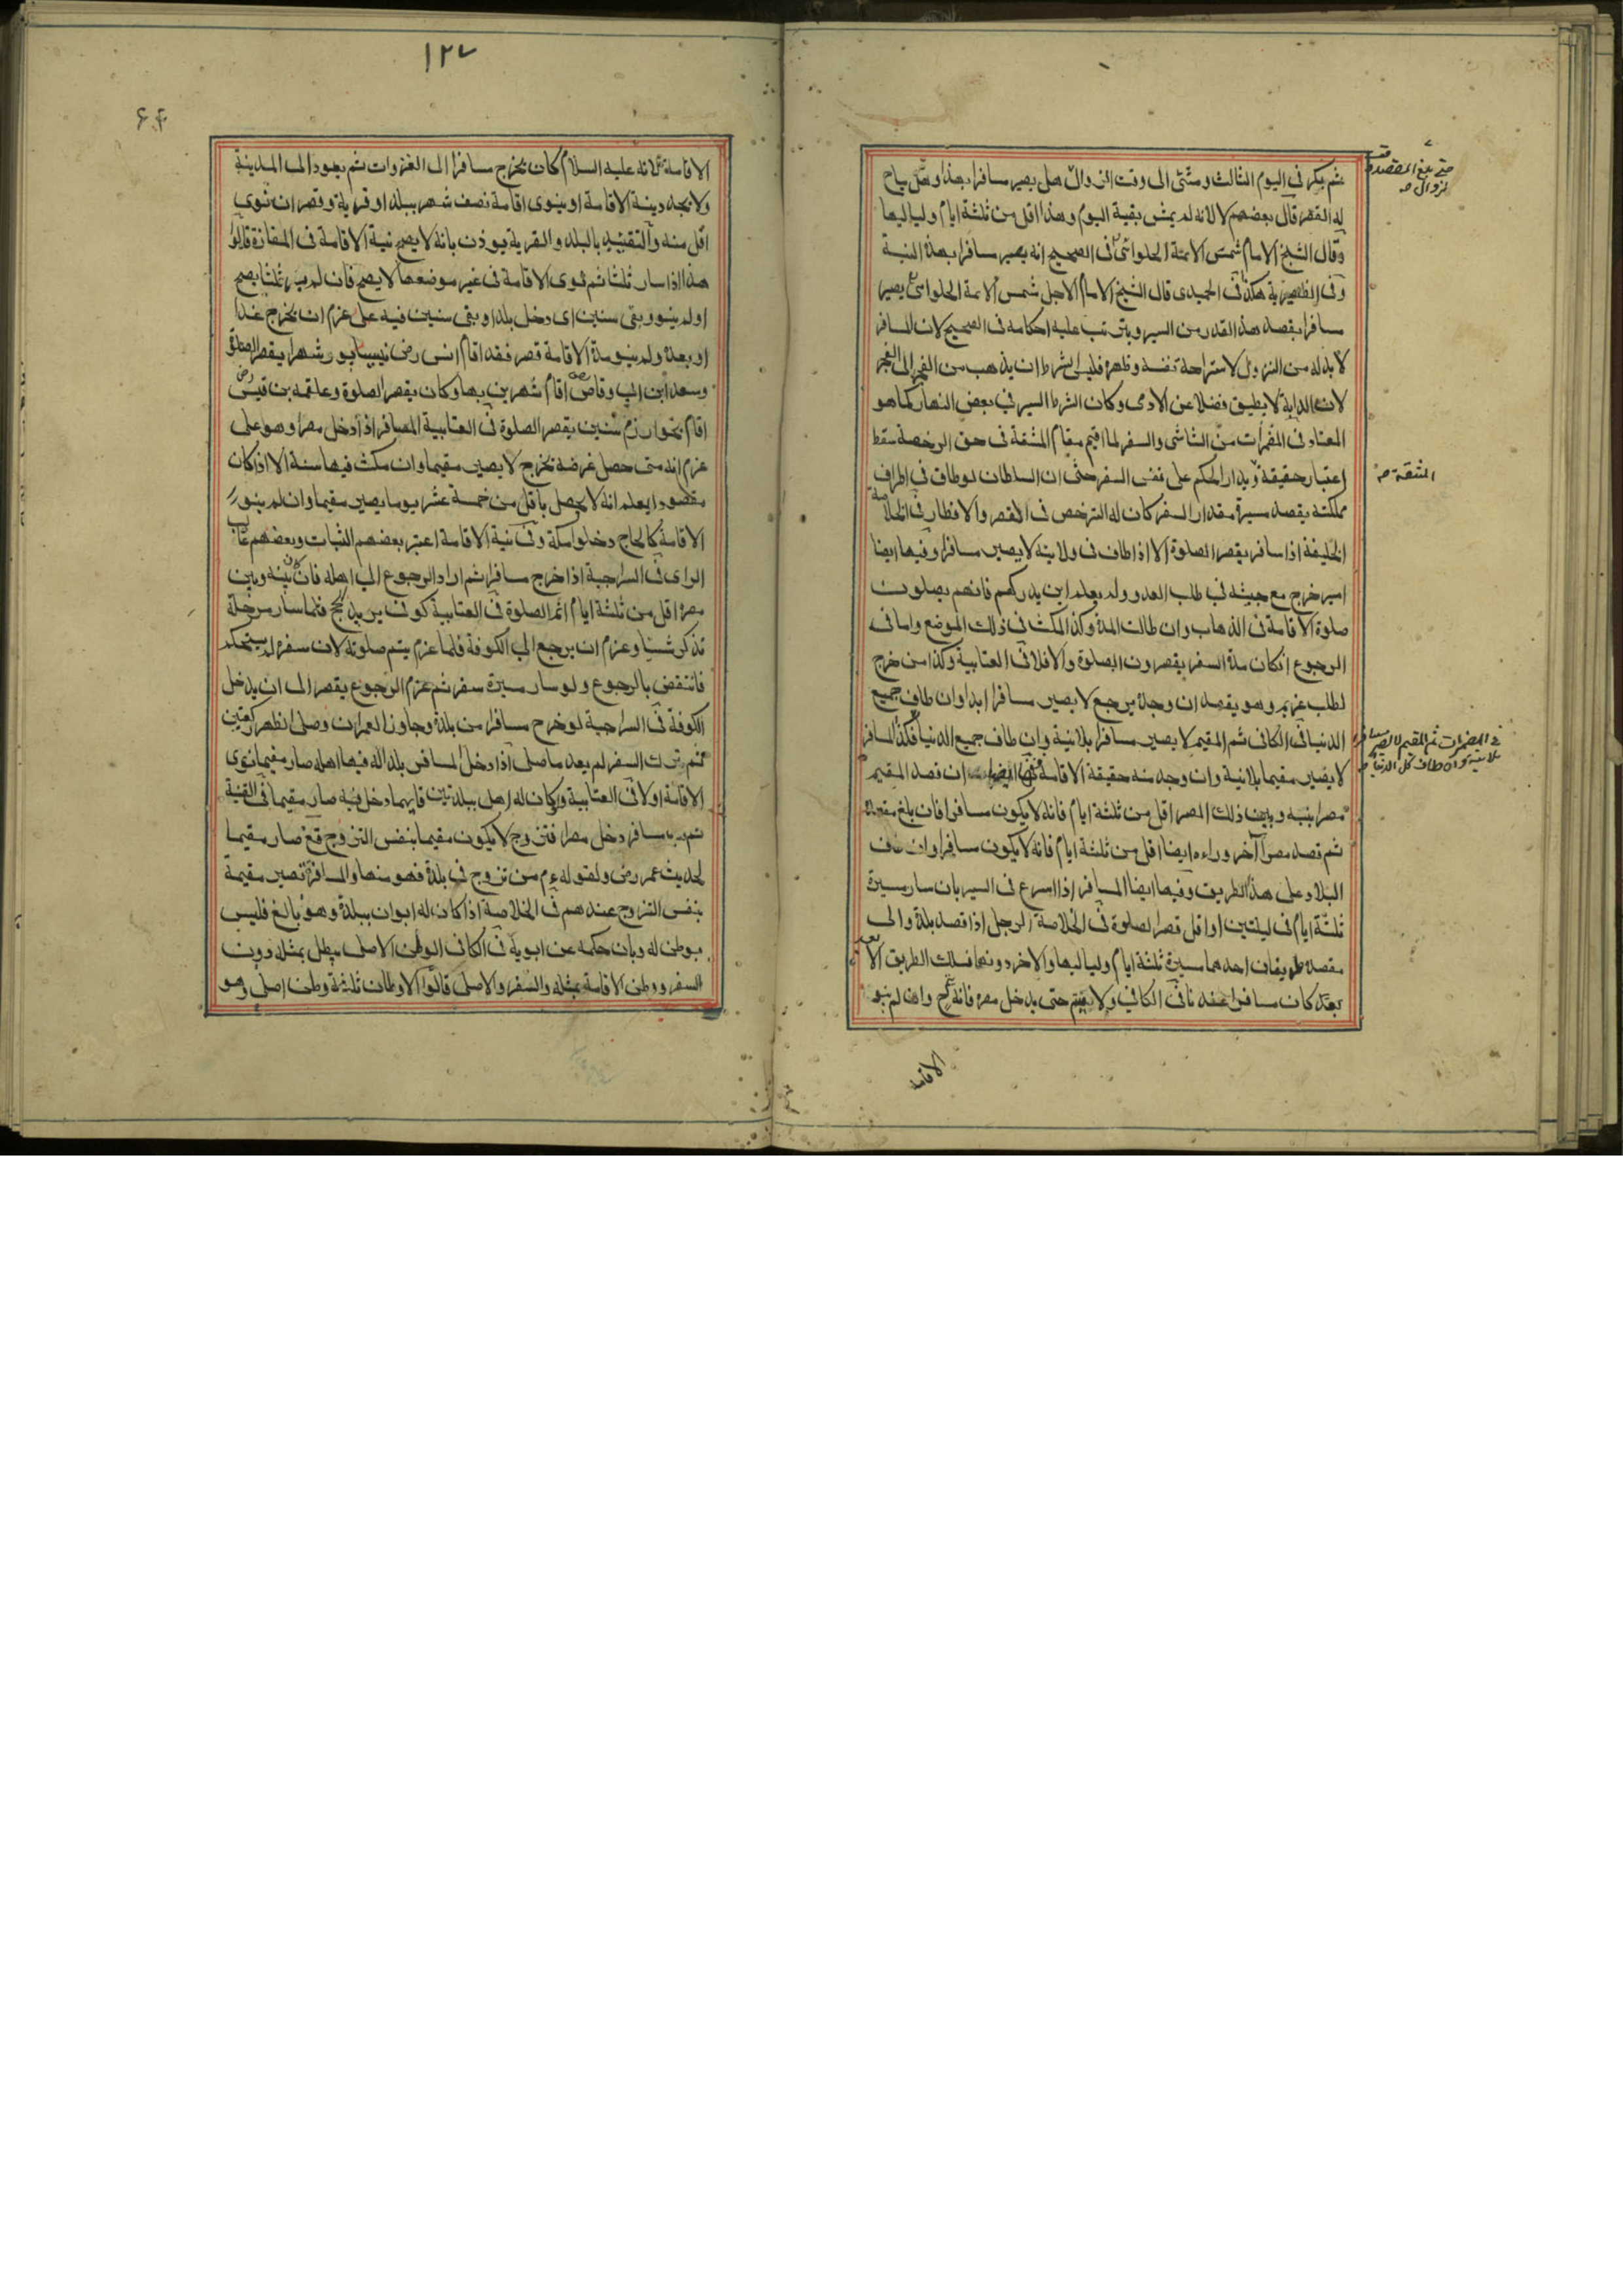 ثم بكر فى اليوم الثالث ومشى الى وقت الزوال هل يصير مسافرا بهذا وهل يباح
له القصر قال بعضهم لا لانه لم يمش بقية اليوم وهذا اقل من ثلثة ايام ولياليها
وقال الشيخ الامام شمس الائمة الحلوائى فى الصحيح انه يصير مسافرا بهذه النية
وفى الظهيرية هكذا فى الحميدى قال الشيخ الامام الاجل شمس الائمة الحلوائى يصير
مسافرا بقصد هذا القدر من السير ويترتب عليه احكامه فى الصحيح لان المسافر
لا بد له من النزول لاستراحة نفسه وظهره فليس الشرط ان يذهب من الفجر الى الفجر
لان الدابة لا يطيق فضلا عن الادمى وكان الشرط السير فى بعض النهار كما هو
المعتاد فى المضمرات من الشاشى والسفر لما اقيم مقام المشقة فى حق الرخصة سقط
اعتبار حقيقة ويدار الحكم على نفس السفر حتى ان السلطان لو طاف فى اطراف
مملكته بقصد مسيرة مقدار السفر كان له الترخص فى القصر والافطار فى الخلاصة
الخليفة اذا سافر يقصر الصلوة الا اذا طاف فى ولايته لا يصير مسافرا وفيها ايضا
امير خرج مع جيشه فى طلب العدو ولم يعلم اين يدركهم فانهم يصلون
صلوة الاقامة فى الذهاب وان طالت المدة وكذا المكث فى ذلك الموضع واما فى
الرجوع ان كان مدة السفر يقصرون الصلوة والا فلا فى العتابية وكذا من خرج
لطلب غريم وهو يقصد ان وجده يرجع لا يصير مسافرا ابدا وان طاف جميع
الدنيا فى الكافى ثم المقيم لا يصير مسافرا بلا نية وان طاف جميع الدنيا فكذا المسافر
لا يصير مقيما بلا نية وان وجد منه حقيقة الاقامة ان قصد المقيم
مصرا بينه وبين ذلك المصر اقل من ثلثة ايام فانه لا يكون مسافرا فان بلغ مقصده
ثم قصد مصرا آخر وراءه ايضا اقل من ثلثة ايام فانه لا يكون مسافرا وان طاف
البلاد على هذا الطريق وفيها ايضا المسافر اذا اسرع فى السير بان سار مسيرة
ثلثة ايام فى ليلتين او اقل قصر الصلوة فى الخلاصة الرجل اذا قصد بلدة والى
مقصده طريقان احدهما مسيرة ثلثة ايام ولياليها والاخر دونها فسلك الطريق الابعد
كان مسافرا عندنا فى الكافى ولا يتم حتى يدخل مصره فانه وان لم ينو
الاقامة
حتى بلغ المقصد وقت الزوال صح
المشقة صح
فى المضمرات ثم المقيم لا يصير مسافرا
بلا نية وان طاف كل الدنيا صح
١٢٧
الاقامة لانه عليه السلام كان يخرج مسافرا الى الغزوات ثم يعود الى المدينة
ولا يجدد نية الاقامة او ينوى اقامة نصف شهر ببلد او قرية وقصر ان نوى
اقل منه والتقييد بالبلد والقرية يوذن بانه لا يصح نية الاقامة فى المفازة قالوا
هذا اذا سار ثلثا ثم نوى الاقامة فى غير موضعها لا يصح فان لم يسر ثلثا يصح
او لم ينو وبقى سنين اى دخل بلدا وبقى سنين فيه على عزم ان يخرج غدا
او بعده ولم ينو مدة الاقامة قصر فقد اقام انس رض نيسابور شهرا يقصر الصلوة
وسعد ابن ابى وقاص اقام شهرين بها وكان يقصر الصلوة وعلقمه بن قيس
اقام بخوارزم سنين يقصر الصلوة فى العتابية المسافر اذا دخل مصرا وهو على
عزم انه متى حصل غرضه يخرج لا يصير مقيما وان مكث فيها سنة الا اذا كان
مقصودا يعلم انه لا يحصل باقل من خمسة عشر يوما يصير مقيما وان لم ينو
الاقامة كالحاج دخلوا مكة وفى نية الاقامة اعتبر بعضهم الثبات وبعضهم غالب
الراى فى السراجية اذا خرج مسافرا ثم اراد الرجوع الى اهله فان كان بينه وبين
مصره اقل من ثلثة ايام اتم الصلوة فى العتابية كوفى يريد الحج فلما سار مرحلة
تذكر شيئا وعزم ان يرجع الى الكوفة فلما عزم يتم صلوته لان سفره لم يستحكم
فانتقض بالرجوع ولو سار مسيرة سفر ثم عزم الرجوع يقصر الى ان يدخل
الكوفة فى السراجية لو خرج مسافرا من بلدة وجاوز العمران وصلى الظهر ركعتين
ثم ترك السفر لم يعد ما صلى اذا دخل المسافر بلدا له فيها اهل صار مقيما نوى
الاقامة او لا فى العتابية وكان له اهل ببلدتين فايهما دخل فيه صار مقيما فى القنية
مسافر دخل مصرا فتزوج لا يكون مقيما بنفس التزوج صار مقيما
لحديث عمر رض ولقوله عم من تزوج فى بلدة فهو منها والمسافرة تصير مقيمة
بنفس التزوج عندهم فى الخلاصة اذا كان له ابوان ببلدة وهو بالغ فليس
بوطن له وبان حكمه عن ابويه فى الكافى الوطن الاصلى يبطل بمثله دون
السفر ووطن الاقامة بمثله والسفر والاصلى قالوا الاوطان ثلثة وطن اصلى وهو